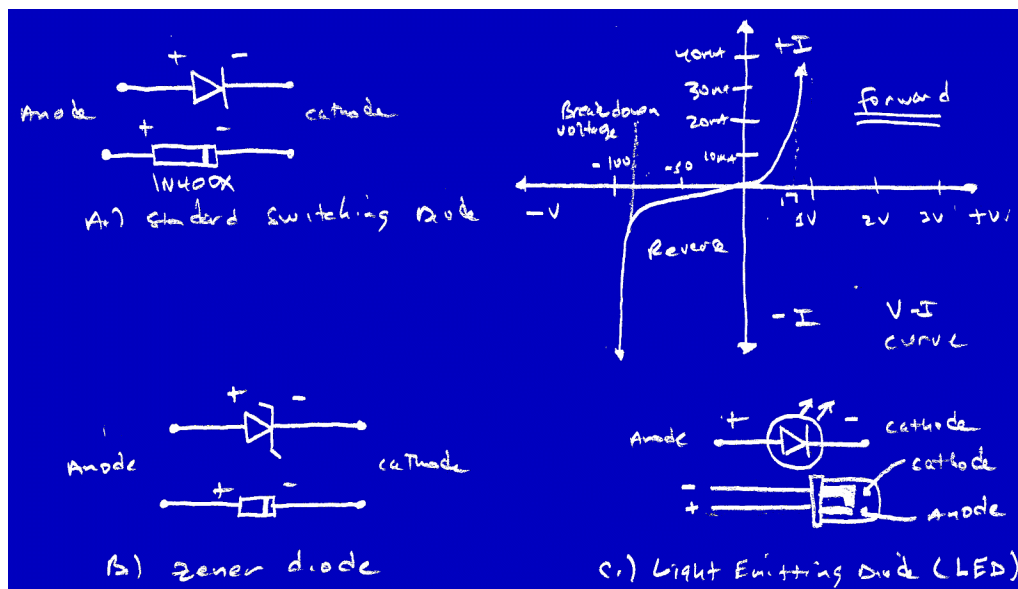 + -
Anode cathode
+ -
1N400X
A.) Standard Switching Diode
+I
40mA
30mA
20mA
10mA
Forward
Breakdown
voltage
-100 -50
-V 1V 2V 3V +V
Reverse
-I
V-I
curve
+ -
Anode cathode
+ -
B.) zener diode
+ -
Anode cathode
cathode
-
+
Anode
C.) Light Emitting Diode (LED)